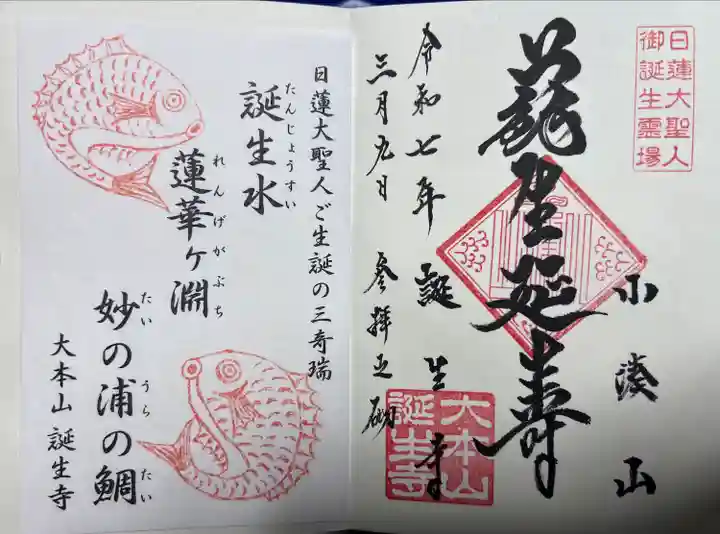 日蓮大聖人
御誕生霊場
小湊山
蘇生延寿
令和七年 誕生寺
三月九日 参拝之砌
大本山
誕生寺
日蓮大聖人ご生誕の三奇瑞
たんじょうすい
誕生水
れんげがぶち
蓮華ヶ淵
たい うら たい
妙の浦の鯛
大本山 誕生寺